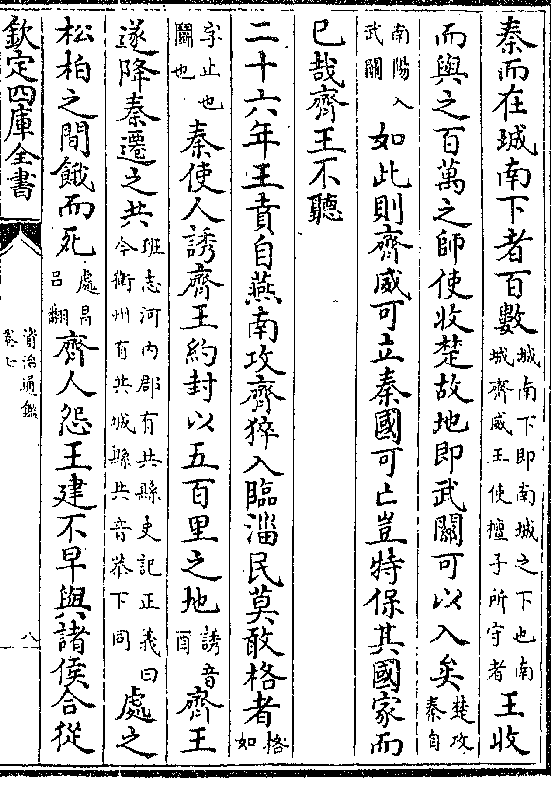 秦而在城南下者百數城南下即南城之下也南城齊威王使檀子所守者王收
而與之百萬之師使收楚故地即武關可以入矣楚攻秦自
南陽入武關如此則齊威可立秦國可亡豈特保其國家而
已哉齊王不聽
二十六年王賁自燕南攻齊猝入臨淄民莫敢格者格如
字止也鬭也秦使人誘齊王約封以五百里之地誘音酉齊王
遂降秦遷之共班志河内郡有共縣史記正義曰今衛州有共城縣共音恭下同處之
松柏之間餓而死處昌吕翻齊人怨王建不早與諸侯合從
欽定四庫全書
資治通鑑
卷七
八